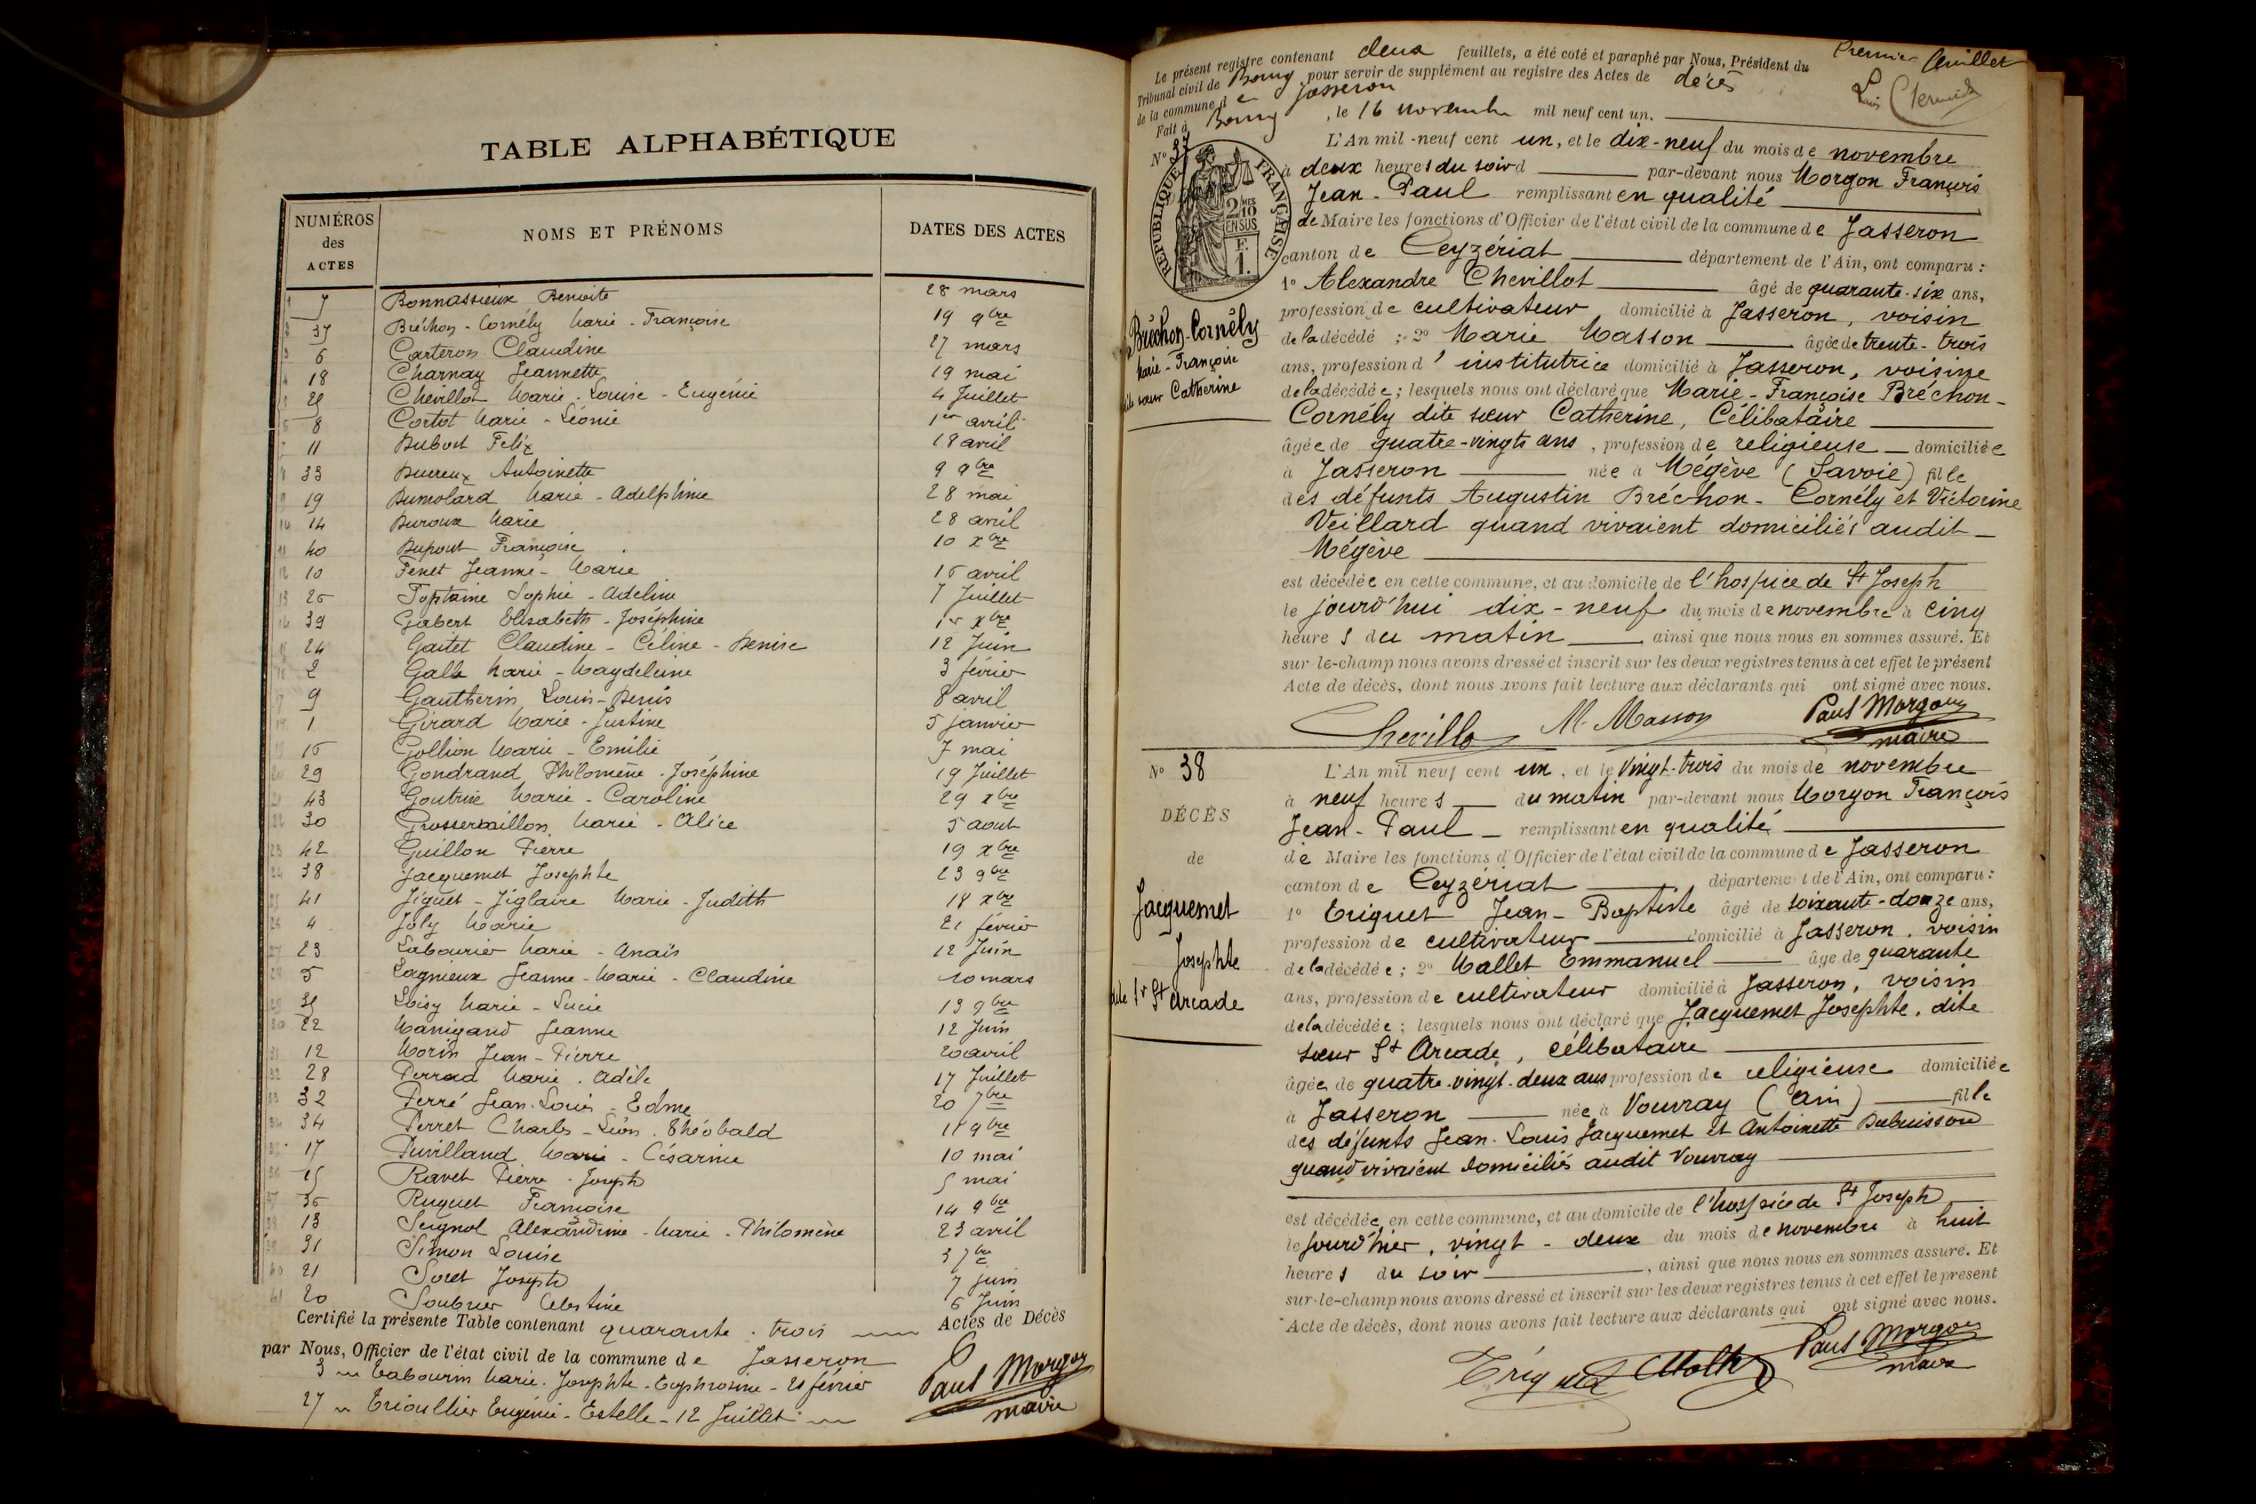 TABLE ALPHABÉTIQUE
NUMÉROS des ACTES NOMS ET PRÉNOMS DATES DES ACTES
7 Bonnassieux Benoite 28 mars
37 Bréchon-Cornély Marie-Françoise 19 9bre
6 Carteron Claudine 27 mars
18 Charnay Jeannette 19 mai
Chevillot Marie-Louise-Eugénie 4 Juillet
8 Cortot Marie-Léonie 1er avril
11 Dubost Felix 18 avril
33 Ducreux Antoinette 9 9bre
19 Dumolard Marie-Adelphine 28 mai
14 Duroux Marie 28 avril
40 Dupont Françoise 10 xbre
10 Fenet Jeanne-Marie 15 avril
25 Fontaine Sophie-Adeline 7 Juillet
39 Gabert Elisabeth-Joséphine 1er xbre
24 Gaitet Claudine-Céline-Denise 12 Juin
2 Galle Marie-Magdeleine 3 février
9 Gautherin Louis-Denis 8 avril
1 Girard Marie-Justine 5 Janvier
16 Gollion Marie-Emilie 7 mai
29 Gondrand Philomène-Joséphine 19 Juillet
43 Goutrie Marie-Caroline 29 xbre
30 Grosservaillon Marie-Alice 5 aout
42 Guillon Pierre 19 xbre
38 Jacquemet Josephte 23 9bre
41 Jiguet-Jiglaire Marie-Judith 18 xbre
4 Joly Marie 21 février
23 Labourier Marie-Anaïs 12 Juin
5 Lagnieux Jeanne-Marie-Claudine 10 mars
35 Loisy Marie-Lucie 13 9bre
22 Manigand Jeanne 12 Juin
12 Morin Jean-Pierre 20 avril
28 Perrad Marie-Adèle 17 Juillet
32 Perré Jean-Louis-Edme 20 7bre
34 Perret Charles-Léon-Théobald 11 9bre
17 Puvilland Marie-Césarine 10 mai
15 Ravet Pierre-Joseph 5 mai
36 Ruquet Françoise 14 9bre
13 Seignol Alexandrine-Marie-Philomène 23 avril
31 Simon Louise 3 7bre
21 Soret Joseph 7 juin
20 Soubrier Célestine 6 Juin
Certifié la présente Table contenant quarante-trois Actes de Décès
par Nous, Officier de l'état civil de la commune de Jasseron
3 Tabourin Marie-Josephte-Euphrosine-20 février
27 Trioullier Eugénie-Estelle-12 Juillet
Paul Morgon
maire
Premier feuillet
Le présent registre contenant deux feuillets, a été coté et paraphé par Nous, Président du
Tribunal civil de Bourg pour servir de supplément au registre des Actes de décès
de la commune de Jasseron
Fait à Bourg, le 16 novembre mil neuf cent un.
N° 37
RÉPUBLIQUE FRANÇAISE
2/10 EN SUS
F. 1.
Bréchon-Cornély
Marie-Françoise
dite sœur Catherine
L'An mil-neuf cent un, et le dix-neuf du mois de novembre
à deux heures du soir par-devant nous Morgon François
Jean-Paul remplissant en qualité
de Maire les fonctions d'Officier de l'état civil de la commune de Jasseron
canton de Ceyzériat département de l'Ain, ont comparu :
1° Alexandre Chevillot âgé de quarante-six ans,
profession de cultivateur domicilié à Jasseron, voisin
de la décédé ; 2° Marie Masson âgée de trente-trois
ans, profession d'institutrice domicilié à Jasseron, voisine
de la décédée ; lesquels nous ont déclaré que Marie-Françoise Bréchon-
Cornély dite sœur Catherine, Célibataire
âgée de quatre-vingts ans, profession de religieuse domiciliée
à Jasseron née à Mégève (Savoie) fille
des défunts Augustin Bréchon-Cornély et Victorine
Veillard quand vivaient domiciliés audit
Mégève
est décédée en cette commune, et au domicile de l'hospice de St Joseph
le jourd'hui dix-neuf du mois de novembre à cinq
heures du matin ainsi que nous nous en sommes assuré. Et
sur-le-champ nous avons dressé et inscrit sur les deux registres tenus à cet effet le présent
Acte de décès, dont nous avons fait lecture aux déclarants qui ont signé avec nous.
Chevillo M. Masson Paul Morgon
maire
N° 38
DÉCÈS
de
Jacquemet
Josephte
dite Sr St Arcade
L'An mil neuf cent un, et le vingt-trois du mois de novembre
à neuf heures du matin par-devant nous Morgon François
Jean-Paul remplissant en qualité
de Maire les fonctions d'Officier de l'état civil de la commune de Jasseron
canton de Ceyzériat département de l'Ain, ont comparu :
1° Triquet Jean-Baptiste âgé de soixante-douze ans,
profession de cultivateur domicilié à Jasseron, voisin
de la décédée ; 2° Mallet Emmanuel âgé de quarante
ans, profession de cultivateur domicilié à Jasseron, voisin
de la décédée ; lesquels nous ont déclaré que Jacquemet Josephte, dite
sœur St Arcade, célibataire
âgée de quatre-vingt-deux ans profession de religieuse domiciliée
à Jasseron née à Vouvray (Ain) fille
des défunts Jean-Louis Jacquemet et Antoinette Dubuisson
quand vivaient domiciliés audit Vouvray
est décédée en cette commune, et au domicile de l'hospice de St Joseph
le jourd'hier, vingt-deux du mois de novembre à huit
heures du soir, ainsi que nous nous en sommes assuré. Et
sur-le-champ nous avons dressé et inscrit sur les deux registres tenus à cet effet le présent
Acte de décès, dont nous avons fait lecture aux déclarants qui ont signé avec nous.
Paul Morgon
maire